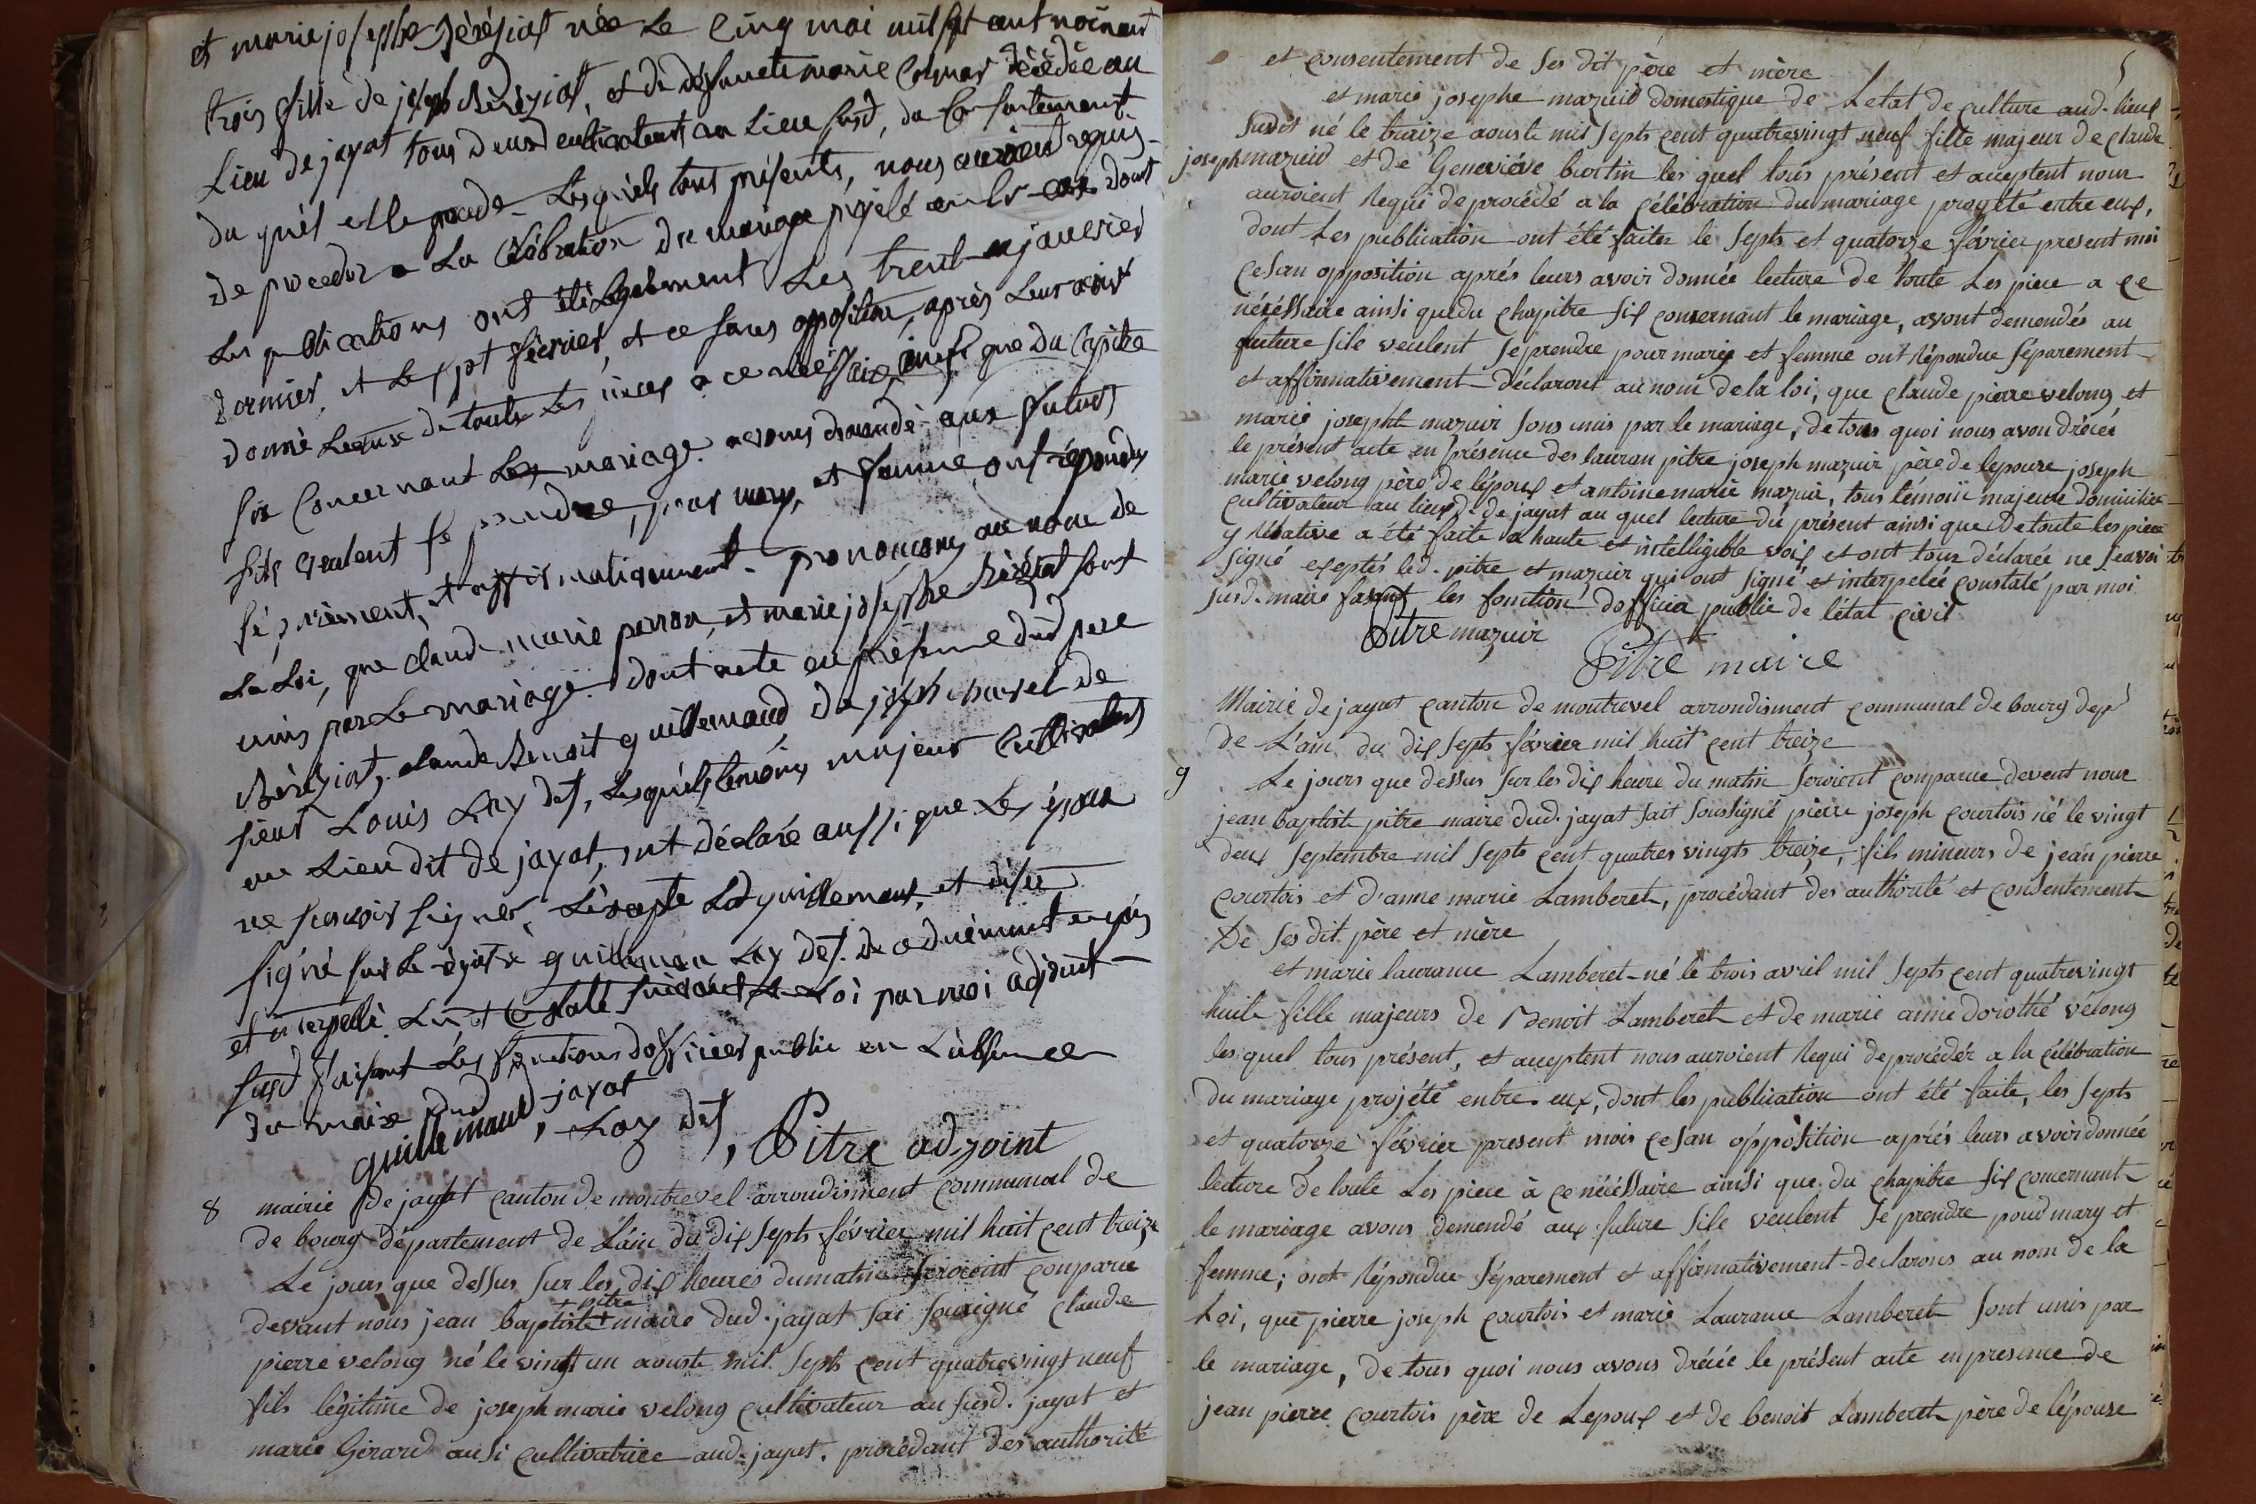 et marie josephe Béréziat née Le Cinq mai mil sept cent
trois fille de joseph Béréziat, et de défuncte marie décédée au
Lieu de jayat tous deux cultivateurs au Lieu susd, du Consentement
du quel elle procède Lesquels tous présents, nous auroient requis
de proceder a La Célébration du mariage projeté dont
Les publications ont été Légalement Les trent un janvier
dernier, et Le sept fevrier, et ce sans opposition, après Leur avoir
donné Lecture de toutes Les pièces a ce nécéssaire, ainsi que du Chapitre
six Concernant Les mariage avons demandé aux futurs
sils veulent se prendre, pour mary, et femme, ont répondus
séparément, et affirmativement. prononçons au nom de
La Loi, que claude marie perron, et marie josephe Béréziat sont
unis par Le mariage dont acte en présence dud pere
Béréziat, claude Benoit guillemaud, de joseph de
sieur Louis Lay det, Lesquels temoins majeurs Cultivateurs
au Lieu dit de jayat, ont déclaré aussi que Les époux
ne scavoir signer, Lèxcepté Led guillemaud, et
signé sur Le Lay det.
et interpellé Loi par moi adjoint
susd faisant Les fonctions dofficier public en Labsence
du maire dud jayat
guillemaud, Lay det, Pitre adjoint
8 mairie de jayat canton de montrevel arrondisment communal de
de bourg département de L'ain du dix septs février mil huit cent treize
Le jours que dessus sur les dix heures dumatin seroient comparue
pitre
devant nous jean baptiste maire dud. jayat sai sousigné claude
pierre velong né le vingt un aouste mil septs cent quatrevingt neuf
fils légitime de joseph marie velong cultivateur au susd. jayat et
marie Gérard ausi cultivatrice aud. jayat. procédant des authorité
et consentement de ses dit père et mère
et marie josephe mazuir domestique de Letat de culture aud. lieux
susdit né le traize aouste mil septs cent quatrevingt neuf fille majeur de claude
joseph mazuir et de Geneviéve burtin les quel tous présent et acceptent nous
auroient Requi de procédé a la célébration du mariage progété entre eux,
dont Les publication ont été faites le septs et quatorze février present moi
cesan opposition aprés leurs avoir donnée lecture de toute Les piece a ce
nécéssaire ainsi que du chapitre six consernant le mariage, avont demendés au
future sile veulent se prendre pour marie et femme ont Répondue séparement
et affirmativement déclaront au nom de la loi, que claude pierre velong et
marie josepht mazuir sons unis par le mariage, de tous quoi nous avon drécée
le présent acte en présence des lauran pitre joseph mazuir père de lepouse joseph
marie velong père de lépoux et antoine marie mazuir, tous témoin majeure domicilié
cultivateur au lieux d. de jayat au quel lecture du présent ainsi que de toute les piece
y Rélative a été faite a haute et intelligible voix et ont tous déclarée ne scavoir
signé exeptés led. pitre et mazuir qui ont signé et interpelée constaté par moi
susd. maire fasant les fonction dofficier public de létat civil
Pitre mazuir
Pitre maire
Mairie de jayat canton de montrevel arrondisment communal de bourg dept
de L'ain du dix septs février mil huit cent treize
9 Le jours que dessus sur les dix heure du matin seroient comparue devent nous
jean baptist pitre maire dud. jayat sait soussigné pierre joseph courtois né le vingt
deux septembre mil septs cent quatres vingts treize, fils mineurs de jean pierre
courtois et d'anne marie Lamberet, procédant des authorité et consentement
De ses dit père et mère
et marie laurance Lamberet né le trois avril mil septs cent quatrevingt
huite fille majeurs de Benoit Lamberet et de marie anne dorothé vélong
les quel tous présent, et acceptent nous auroient Requi de procédér a la célébration
du mariage projété entre eux, dont les publication ont été faite, les septs
et quatorze février present mois cesan oppósition aprés leurs avoir donnée
lecture de toute Les piece à ce nécéssaire ainsi que du chapitre six concernant
le mariage avons demendé aux future sile veulent se prendre pour mary et
femme; ont Répondue séparement et affirmativement declarons au nom de la
Loi, que pierre joseph courtois et marie Laurance Lamberet sont unis par
le mariage, de tous quoi nous avons drécée le présent acte en presence de
jean pierre courtois père de Lepoux et de benoit Lamberet père de lépouse